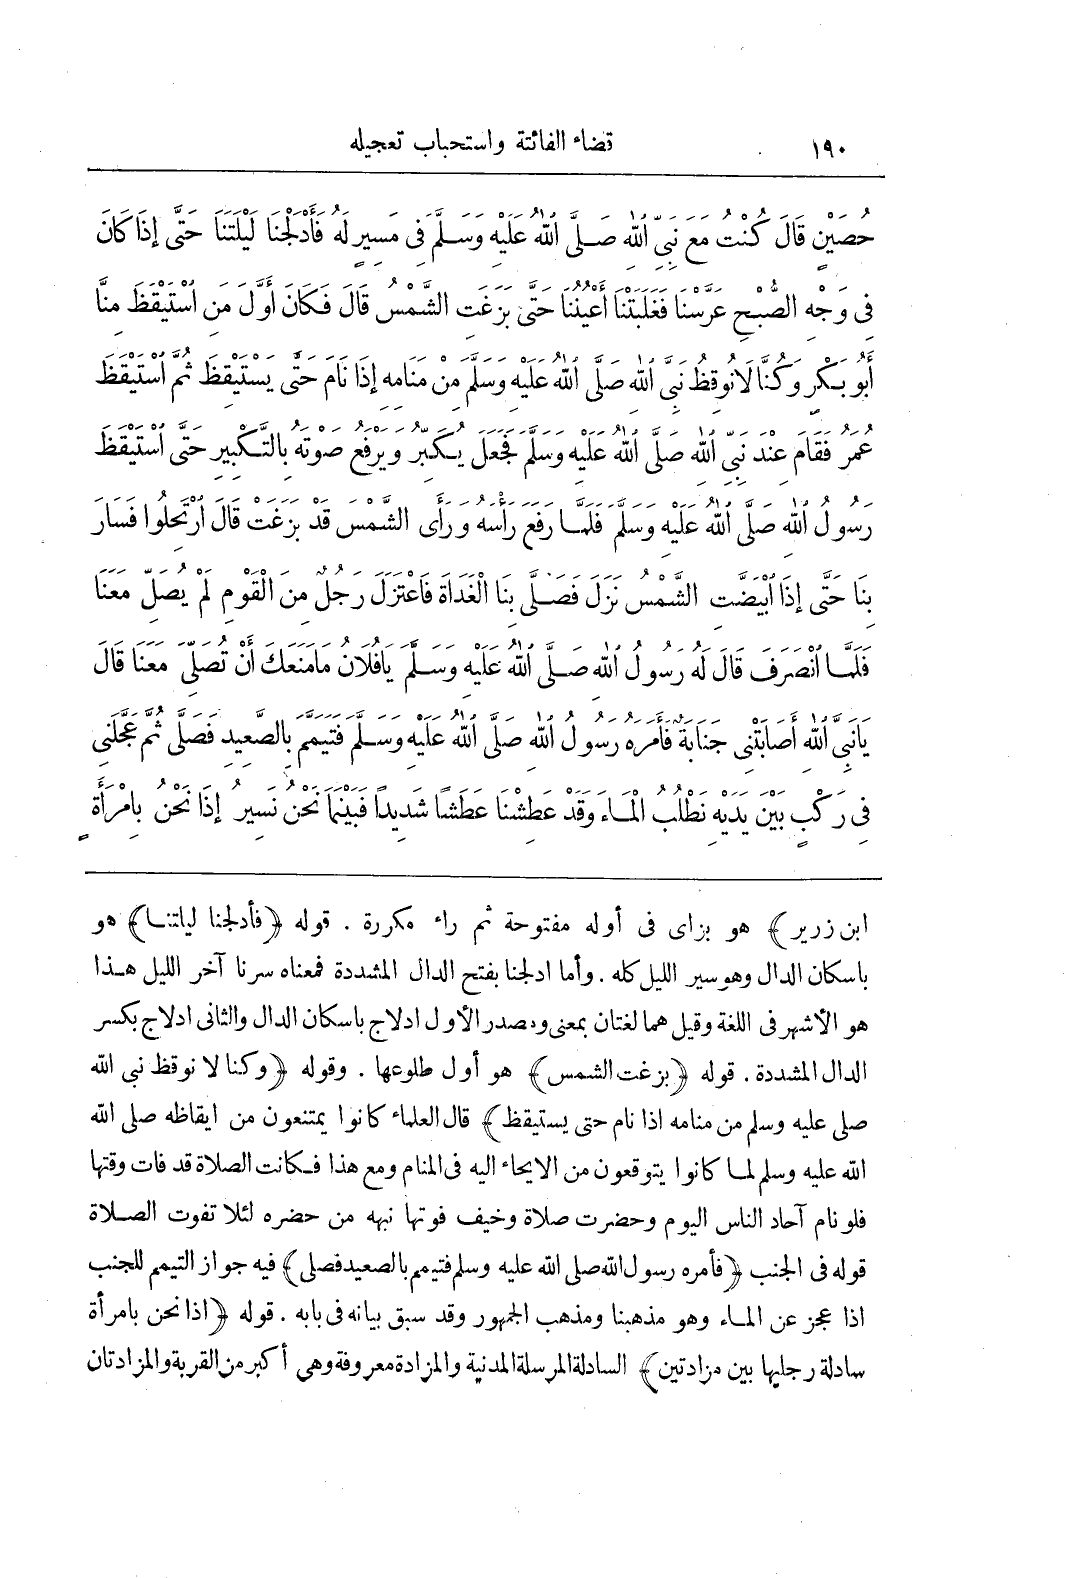 ١٩٠ قضاء الفائتة واستحباب تعجيله
حُصَيْنٍ قَالَ كُنْتُ مَعَ نَبِيِّ اللهِ صَلَّى اللهُ عَلَيْهِ وَسَلَّمَ فِى مَسِيرٍ لَهُ فَأَدْلَجْنَا لَيْلَتَنَا حَتَّى إِذَا كَانَ
فِى وَجْهِ الصُّبْحِ عَرَّسْنَا فَغَلَبَتْنَا أَعْيُنُنَا حَتَّى بَزَغَتِ الشَّمْسُ قَالَ فَكَانَ أَوَّلَ مَنِ اسْتَيْقَظَ مِنَّا
أَبُو بَكْرٍ وَكُنَّا لَا نُوقِظُ نَبِىَّ اللهِ صَلَّى اللهُ عَلَيْهِ وَسَلَّمَ مِنْ مَنَامِهِ إِذَا نَامَ حَتَّى يَسْتَيْقِظَ ثُمَّ اسْتَيْقَظَ
عُمَرُ فَقَامَ عِنْدَ نَبِىِّ اللهِ صَلَّى اللهُ عَلَيْهِ وَسَلَّمَ فَجَعَلَ يُكَبِّرُ وَيَرْفَعُ صَوْتَهُ بِالتَّكْبِيرِ حَتَّى اسْتَيْقَظَ
رَسُولُ اللهِ صَلَّى اللهُ عَلَيْهِ وَسَلَّمَ فَلَمَّا رَفَعَ رَأْسَهُ وَرَأَى الشَّمْسَ قَدْ بَزَغَتْ قَالَ ارْتَحِلُوا فَسَارَ
بِنَا حَتَّى إِذَا ابْيَضَّتِ الشَّمْسُ نَزَلَ فَصَلَّى بِنَا الْغَدَاةَ فَاعْتَزَلَ رَجُلٌ مِنَ الْقَوْمِ لَمْ يُصَلِّ مَعَنَا
فَلَمَّا انْصَرَفَ قَالَ لَهُ رَسُولُ اللهِ صَلَّى اللهُ عَلَيْهِ وَسَلَّمَ يَا فُلَانُ مَا مَنَعَكَ أَنْ تُصَلِّىَ مَعَنَا قَالَ
يَا نَبِىَّ اللهِ أَصَابَتْنِى جَنَابَةٌ فَأَمَرَهُ رَسُولُ اللهِ صَلَّى اللهُ عَلَيْهِ وَسَلَّمَ فَتَيَمَّمَ بِالصَّعِيدِ فَصَلَّى ثُمَّ عَجَّلَنِى
فِى رَكْبٍ بَيْنَ يَدَيْهِ نَطْلُبُ الْمَاءَ وَقَدْ عَطِشْنَا عَطَشًا شَدِيدًا فَبَيْنَمَا نَحْنُ نَسِيرُ إِذَا نَحْنُ بِامْرَأَةٍ
ابن زرير﴾ هو بزاى فى أوله مفتوحة ثم راء مكررة . قوله ﴿فأدلجنا ليلتنا﴾ هو
باسكان الدال وهو سير الليل كله . وأما ادلجنا بفتح الدال المشددة فمعناه سرنا آخر الليل هذا
هو الأشهر فى اللغة وقيل هما لغتان بمعنى ومصدر الأول ادلاج باسكان الدال والثانى ادلاج بكسر
الدال المشددة . قوله ﴿بزغت الشمس﴾ هو أول طلوعها . وقوله ﴿وكنا لا نوقظ نبى الله
صلى عليه وسلم من منامه اذا نام حتى يستيقظ﴾ قال العلماء كانوا يمتنعون من ايقاظه صلى الله
الله عليه وسلم لما كانوا يتوقعون من الايحاء اليه فى المنام ومع هذا فكانت الصلاة قد فات وقتها
فلو نام آحاد الناس اليوم وحضرت صلاة وخيف فوتها نبهه من حضره لئلا تفوت الصلاة
قوله فى الجنب ﴿فأمره رسول الله صلى الله عليه وسلم فتيمم بالصعيد فصلى﴾ فيه جواز التيمم للجنب
اذا عجز عن الماء وهو مذهبنا ومذهب الجمهور وقد سبق بيانه فى بابه . قوله ﴿اذا نحن بامرأة
سادلة رجليها بين مزادتين﴾ السادلة المرسلة المدنية والمزادة معروفة وهى أكبر من القربة والمزادتان